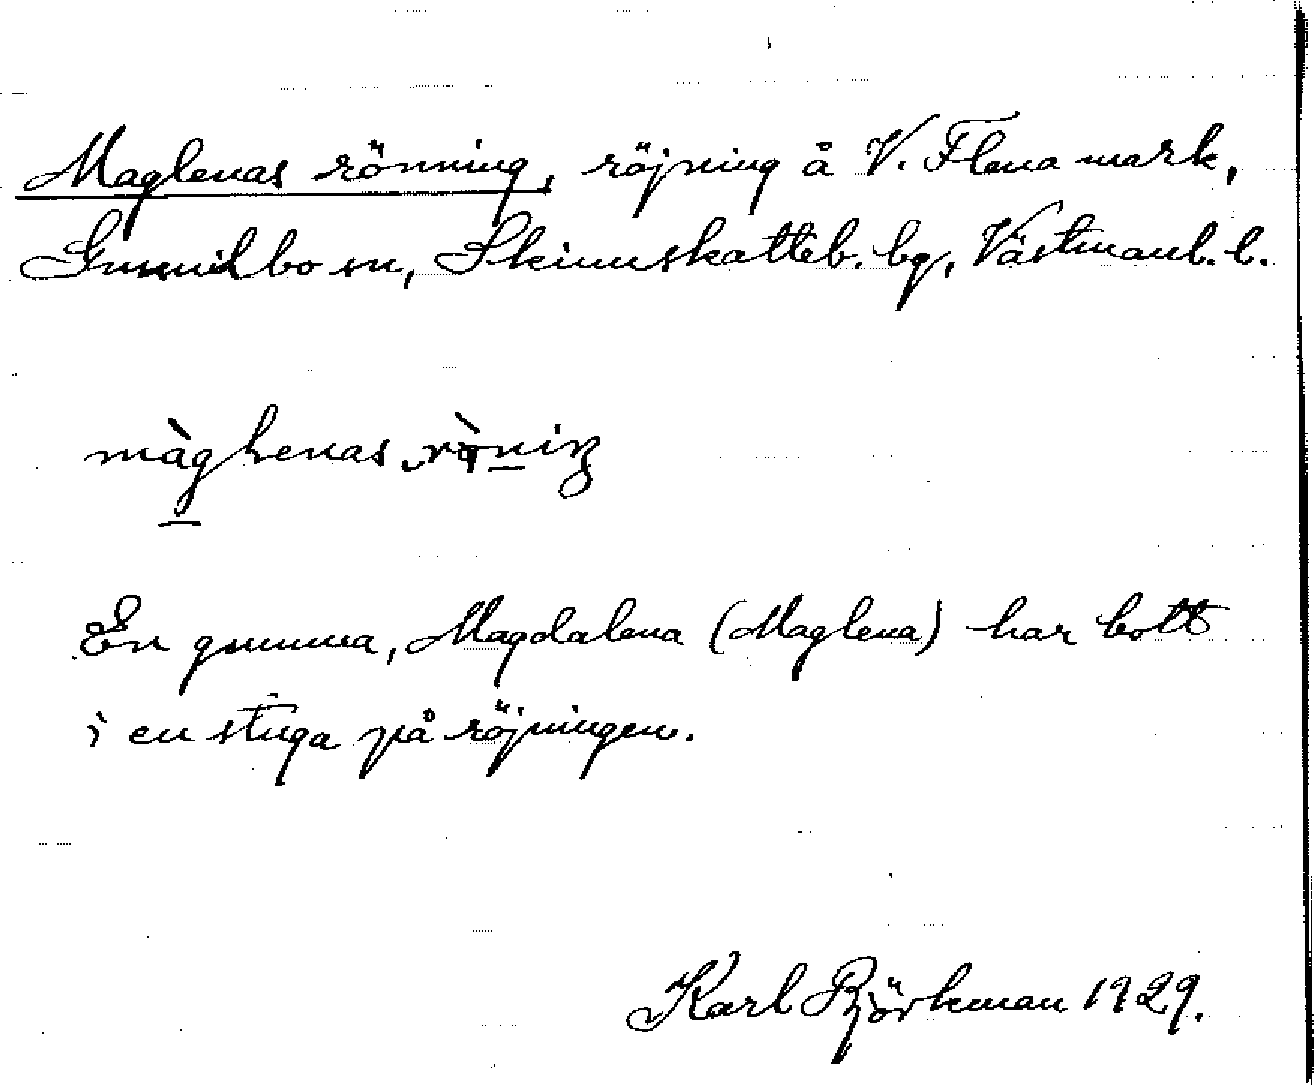 Maglenas rönning, röjning å V. Flena mark,
Gunnilbo sn, Skinnskatteb. bg, Västmanl. l.
En gumma, Magdalena (Maglena) har bott
i en stuga på röjningen.
Karl Björkman 1929.